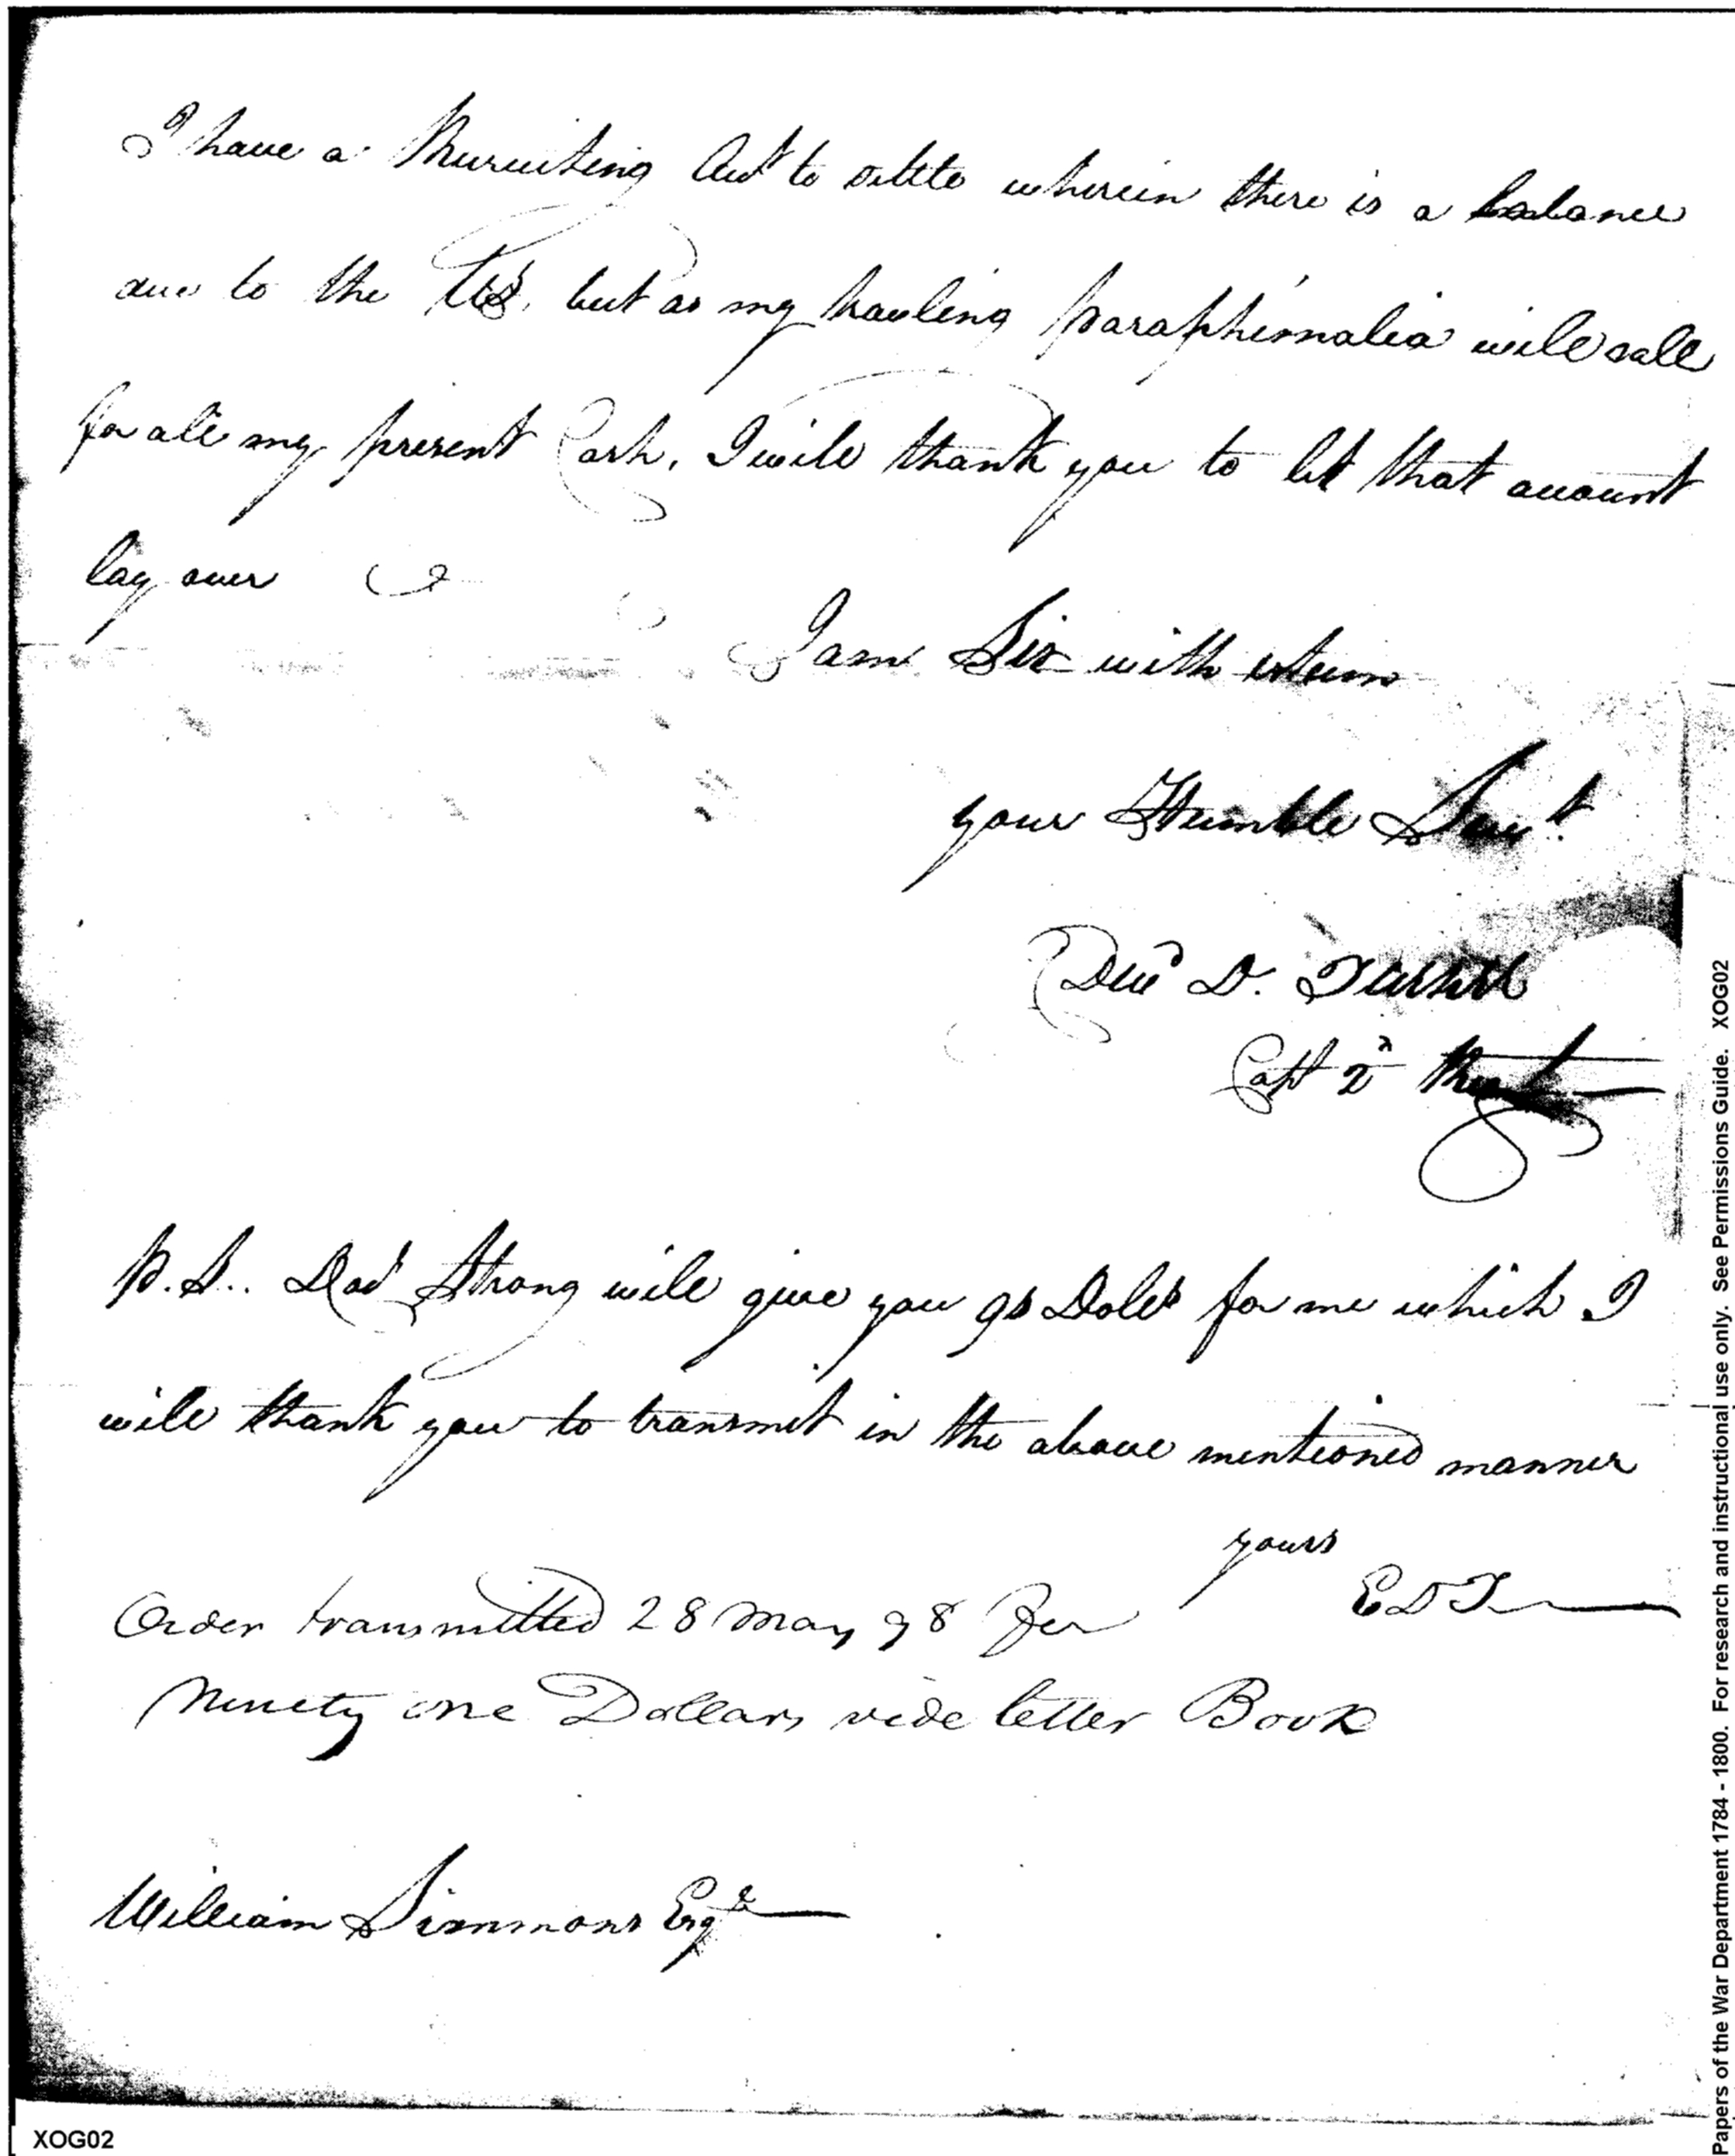 I have a Recruiting Acct to settle wherein there is a balance
due to the US. but as my traveling paraphernalia will call
for all my present Cash, I will thank you to let that account
lay over
I am Sir with esteem
your Humble Servt
Edwd D. Turner
Capt 2d Regt
P.S.. Dad Strong will give you 90 Dolls for me which I
will thank you to transmit in the above mentioned manner
yours
E D T
Order transmitted 28 May 98 for
Ninety one Dollars vide letter Book
William Simmons Esqr
Papers of the War Department 1784 - 1800. For research and instructional use only. See Permissions Guide. XOG02
XOG02